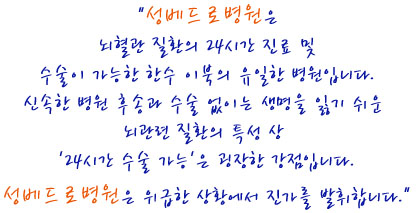 "성베드로병원은
뇌혈관 질환의 24시간 진료 및
수술이 가능한 한수 이북의 유일한 병원입니다.
신속한 병원 후송과 수술 없이는 생명을 잃기 쉬운
뇌관련 질환의 특성 상
'24시간 수술 가능'은 굉장한 강점입니다.
성베드로병원은 위급한 상황에서 진가를 발휘합니다."